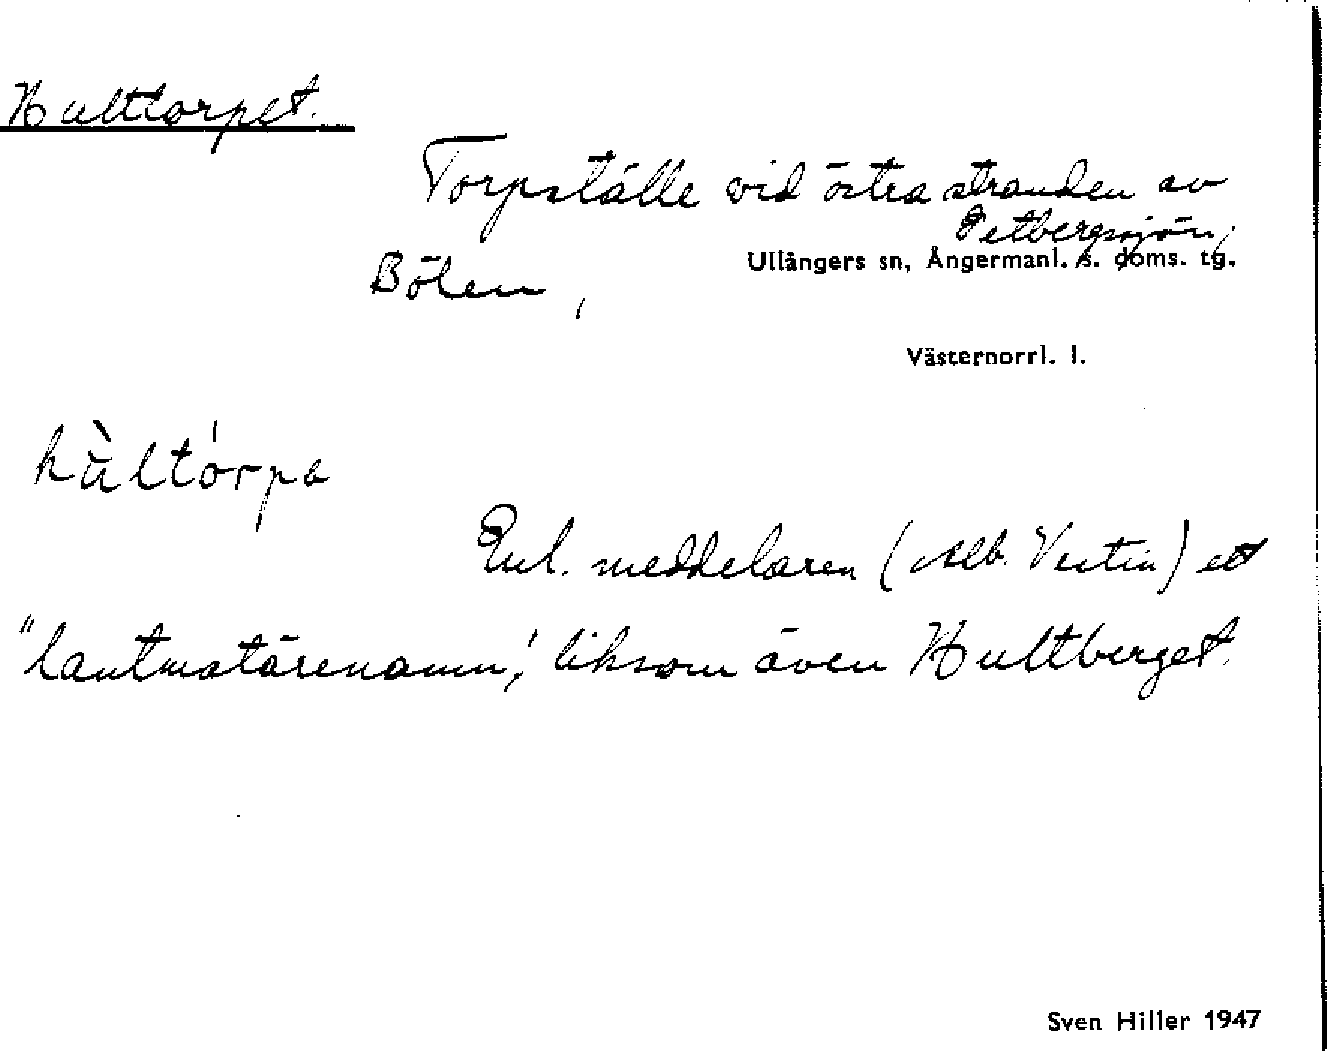 Hulttorpet.
Torpställe vid östra stranden av
Petbergssjön,
Bölen,
Ullångers sn, Ångermanl. s. doms. tg.
Västernorrl. l.
hùltórpa
Enl. meddelaren (Alb. Vestin) ett
"lantmätärenamn," liksom även Hultberget.
Sven Hiller 1947